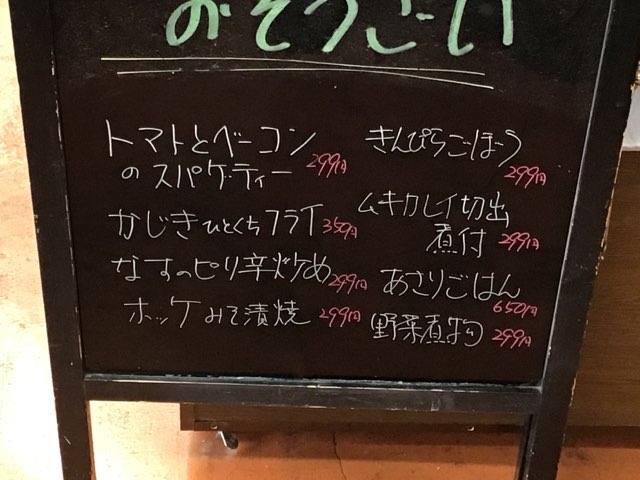 おそうざい
トマトとベーコン
のスパゲティー 299円
かじきひとくちフライ 350円
なすのピリ辛炒め 299円
ホッケみそ漬焼 299円
きんぴらごぼう
299円
ムキカレイ切出
煮付 299円
あさりごはん
650円
野菜煮物 299円